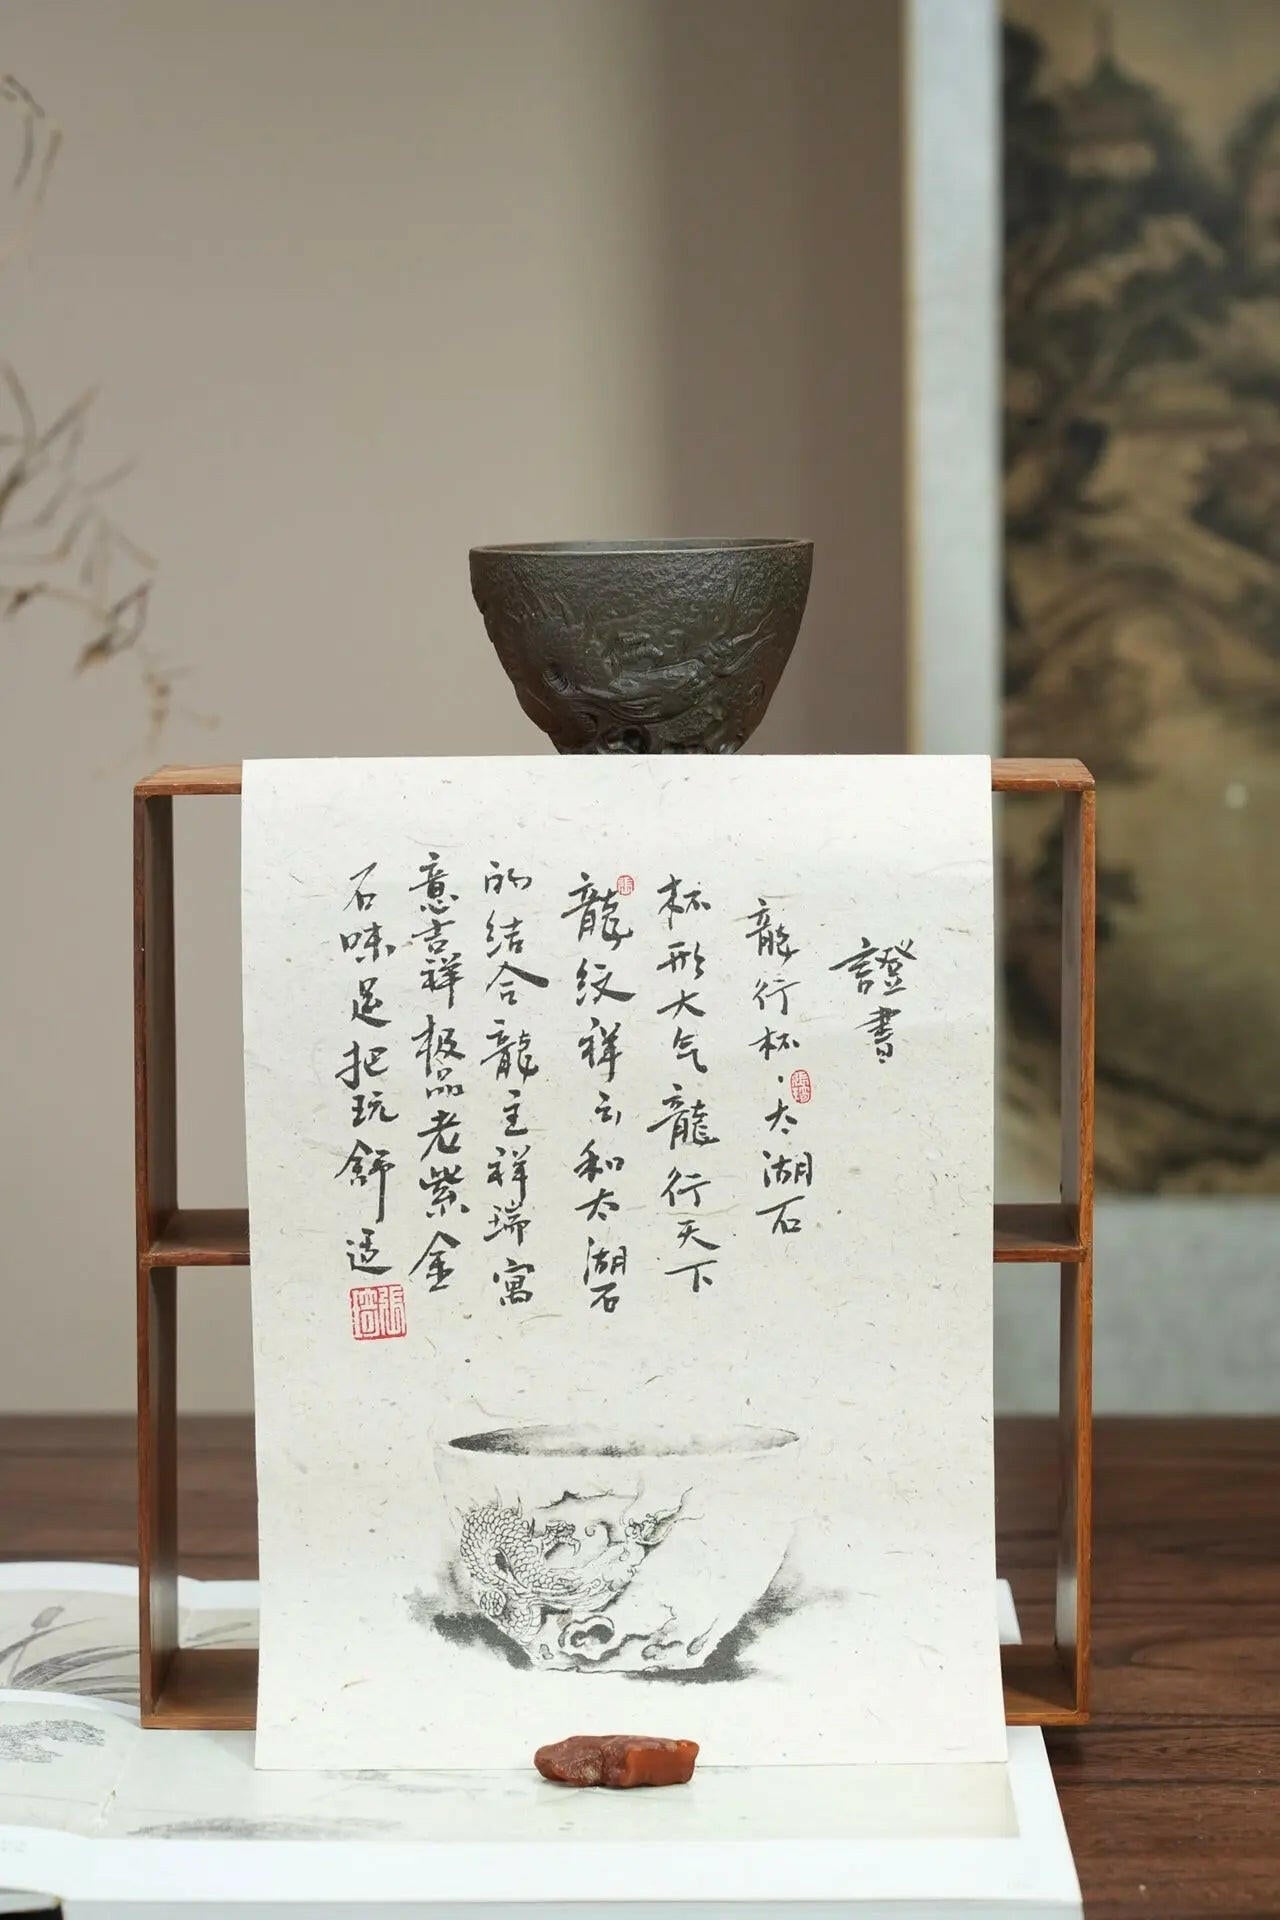 證書
龍行杯·太湖石
杯形大气龍行天下
龍纹祥云和太湖石
的结合龍主祥瑞寓
意吉祥极品老紫金
石味足把玩舒适